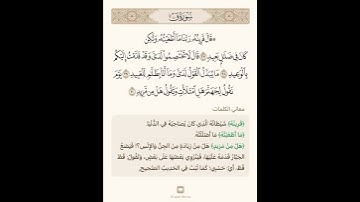 سورة ق
۞ قَالَ قَرِينُهُۥ رَبَّنَا مَآ أَطۡغَيۡتُهُۥ وَلَٰكِن
كَانَ فِي ضَلَٰلِۭ بَعِيدٖ ٢٧ قَالَ لَا تَخۡتَصِمُواْ لَدَيَّ وَقَدۡ قَدَّمۡتُ إِلَيۡكُم
بِٱلۡوَعِيدِ ٢٨ مَا يُبَدَّلُ ٱلۡقَوۡلُ لَدَيَّ وَمَآ أَنَا۠ بِظَلَّٰمٖ لِّلۡعَبِيدِ ٢٩ يَوۡمَ
نَقُولُ لِجَهَنَّمَ هَلِ ٱمۡتَلَأۡتِ وَتَقُولُ هَلۡ مِن مَّزِيدٖ ٣٠
معاني الكلمات
﴿قَرِينُهُ﴾ شَيْطَانُهُ الَّذِي كَانَ يُصَاحِبُهُ فِي الدُّنْيَا.
﴿مَا أَطْغَيْتُهُ﴾ مَا أَضْلَلْتُهُ.
﴿هَلْ مِنْ مَزِيدٍ﴾ هَلْ مِنْ زِيَادَةٍ مِنَ الجِنِّ وَالإِنْسِ؟! فَيَضَعُ
الجَبَّارُ قَدَمَهُ عَلَيْهَا، فَيَنْزَوِي بَعْضُهَا عَلَى بَعْضٍ، وَتَقُولُ: قَطْ
قَطْ، أَيْ: حَسْبِي؛ كَمَا ثَبَتَ فِي الحَدِيثِ الصَّحِيحِ.